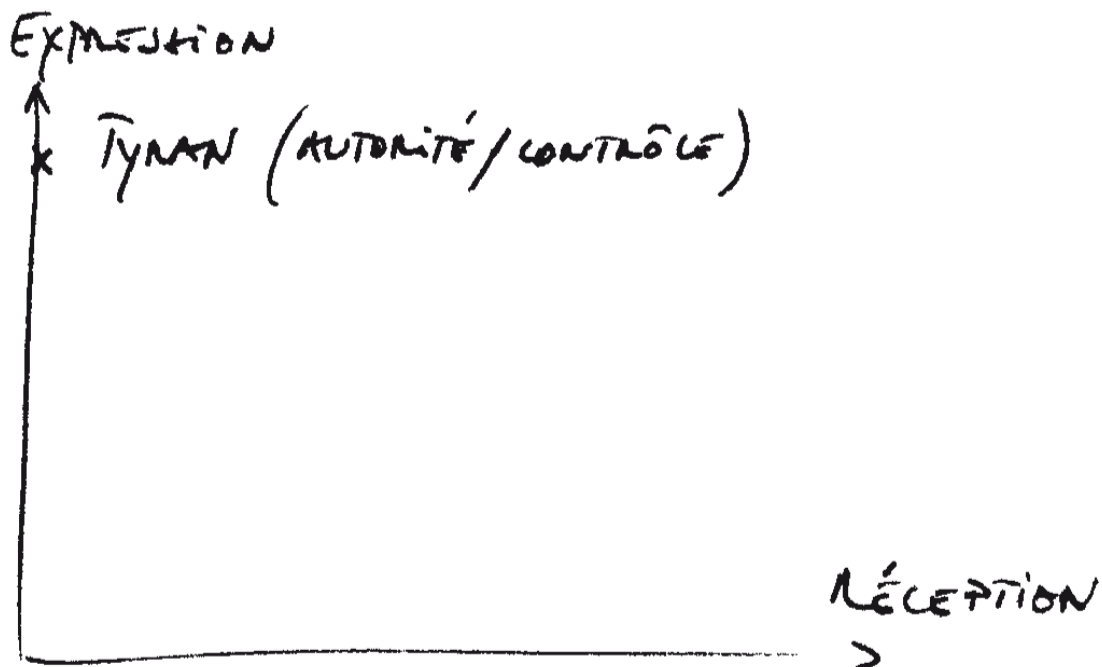 EXPRESSION
TYRAN (AUTORITÉ/CONTRÔLE)
RÉCEPTION